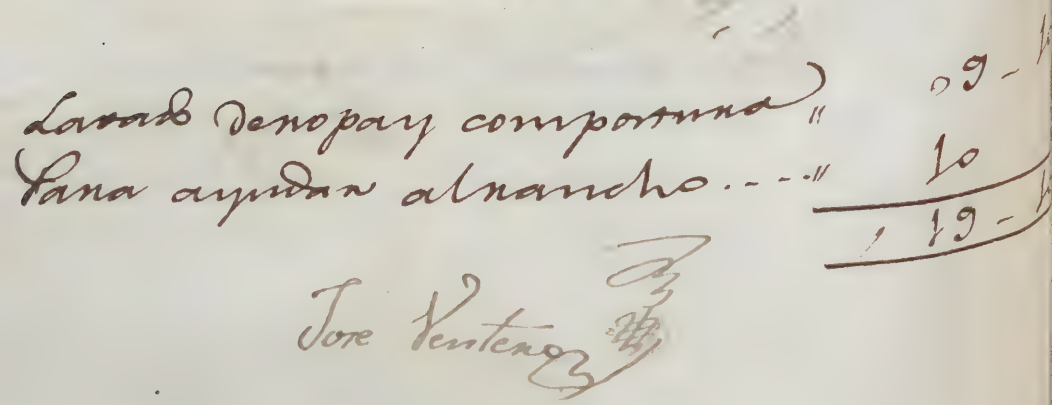 Lavado de ropa y compostura „ 09 -
Para ayudar al rancho.....„ 10
19 -
Jose Venteno